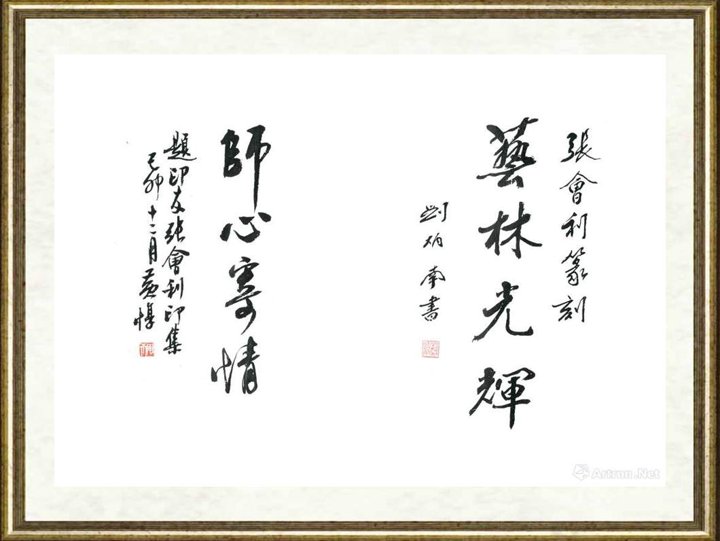 張會利篆刻
藝林光輝
劉炳南書
師心寄情
題印友張會利印集
己卯十二月黃惇
Artron.Net